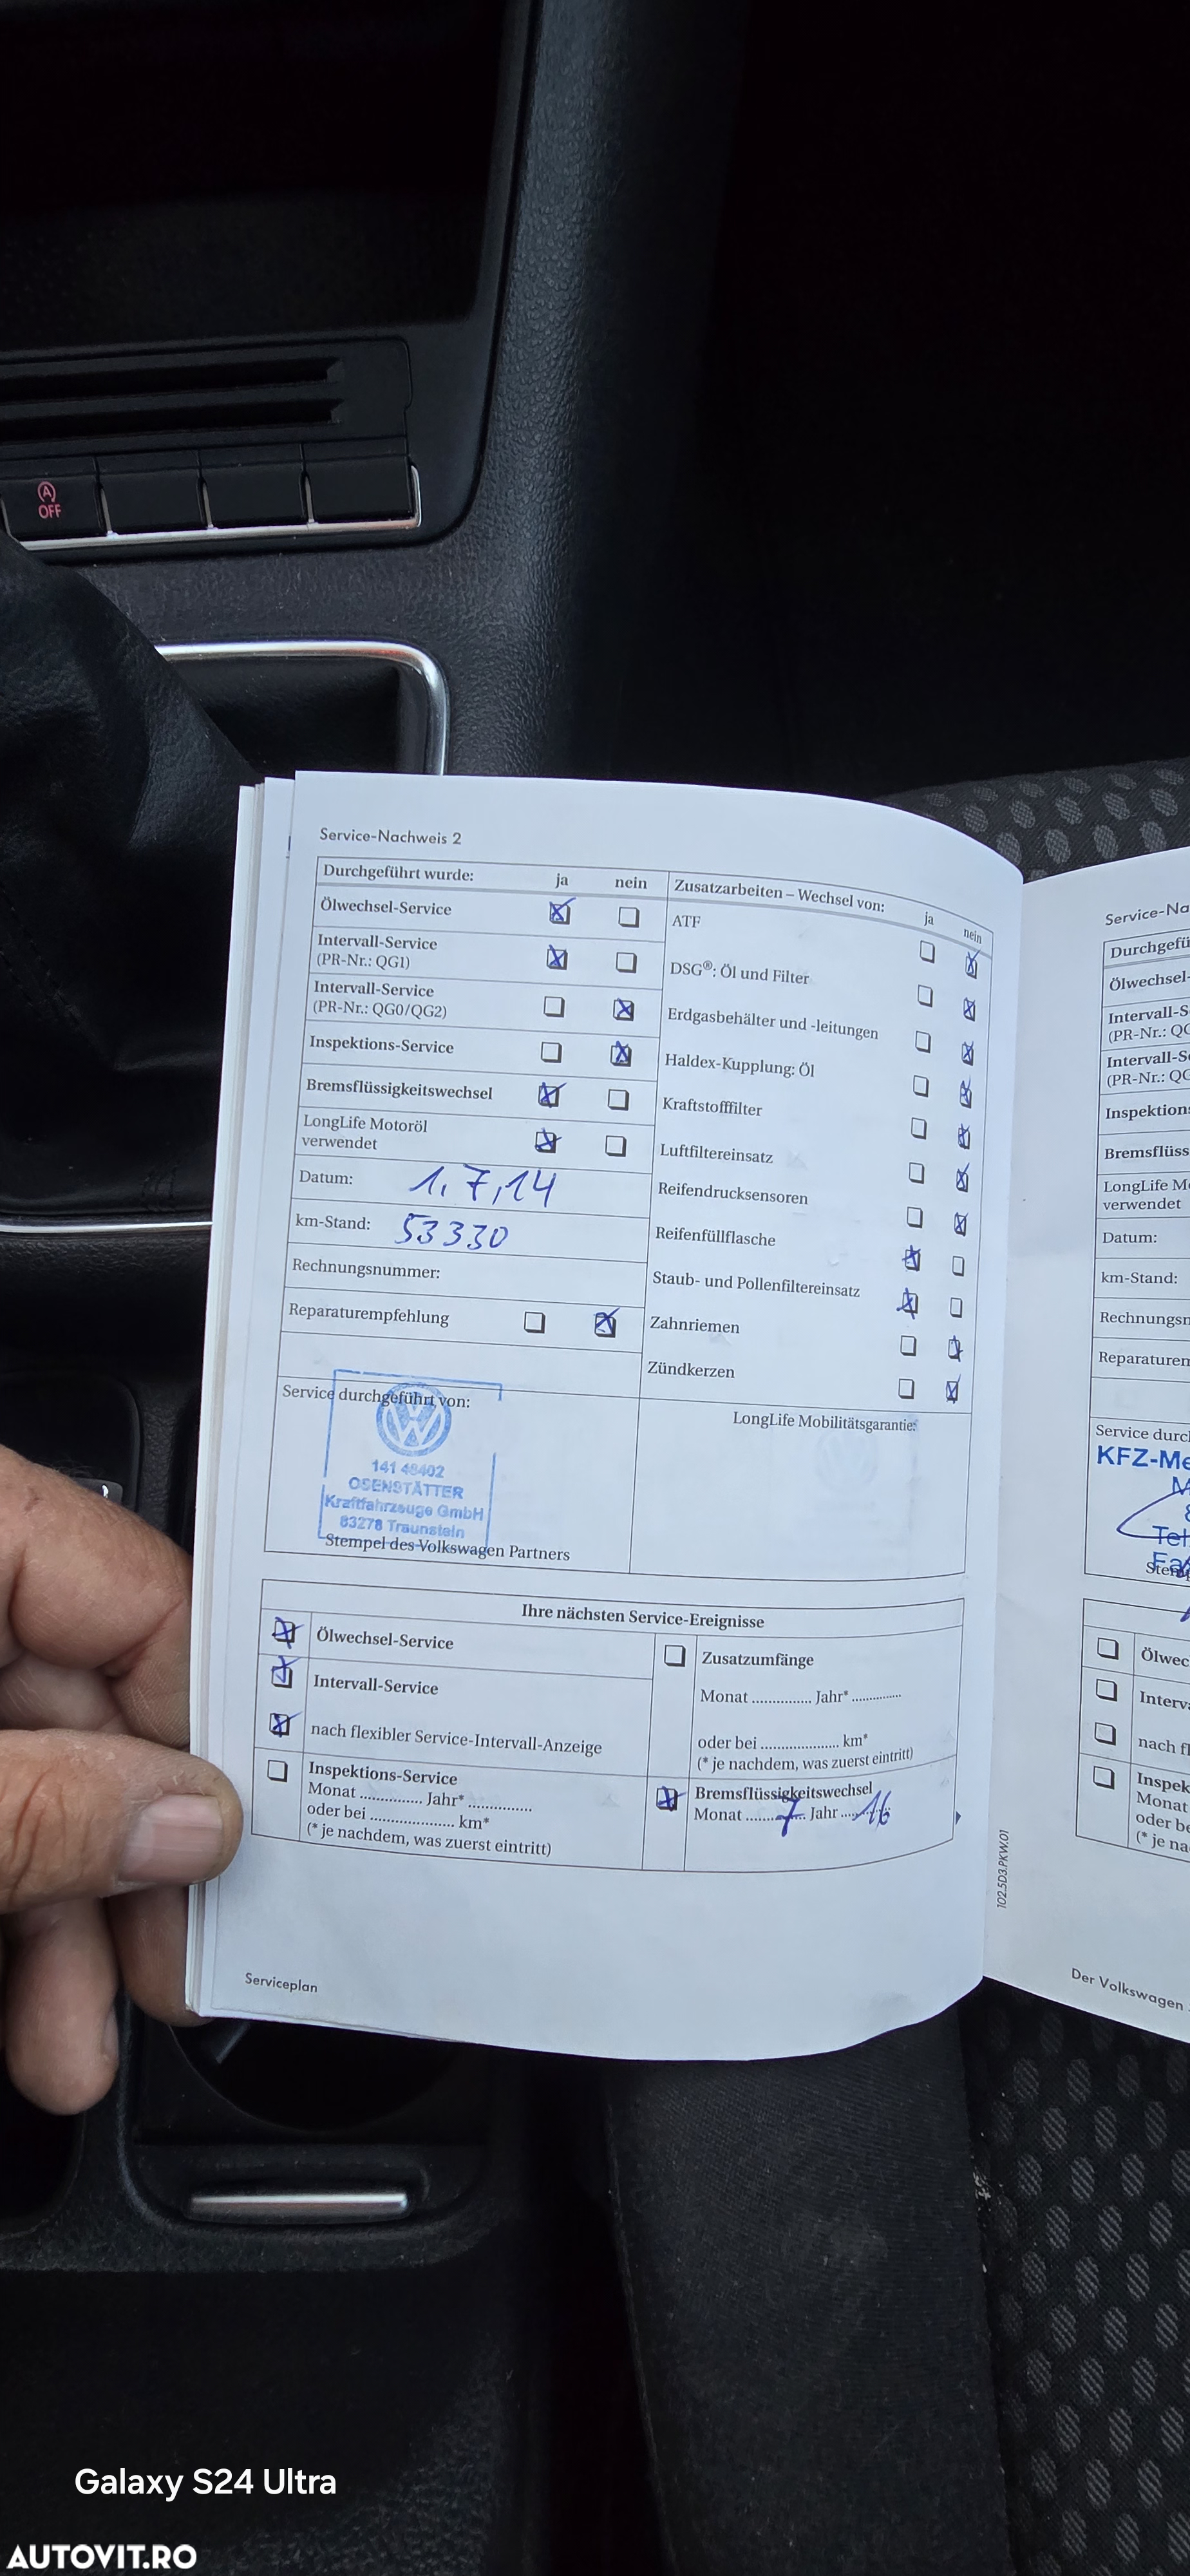 A
OFF
Service-Nachweis 2
Durchgeführt wurde: ja nein
Ölwechsel-Service
Intervall-Service
(PR-Nr.: QG1)
Intervall-Service
(PR-Nr.: QG0/QG2)
Inspektions-Service
Bremsflüssigkeitswechsel
LongLife Motoröl
verwendet
Datum: 1,7,14
km-Stand: 53330
Rechnungsnummer:
Reparaturempfehlung
Service durchgeführt von:
141 48402
OSENSTÄTTER
Kraftfahrzeuge GmbH
83278 Traunstein
Stempel des Volkswagen Partners
Zusatzarbeiten – Wechsel von: ja nein
ATF
DSG®: Öl und Filter
Erdgasbehälter und -leitungen
Haldex-Kupplung: Öl
Kraftstofffilter
Luftfiltereinsatz
Reifendrucksensoren
Reifenfüllflasche
Staub- und Pollenfiltereinsatz
Zahnriemen
Zündkerzen
LongLife Mobilitätsgarantie:
Ihre nächsten Service-Ereignisse
Ölwechsel-Service
Intervall-Service
nach flexibler Service-Intervall-Anzeige
Inspektions-Service
Monat .............. Jahr* ..............
oder bei .................... km*
(* je nachdem, was zuerst eintritt)
Zusatzumfänge
Monat .............. Jahr* ..............
oder bei .................... km*
(* je nachdem, was zuerst eintritt)
Bremsflüssigkeitswechsel
Monat ....7.... Jahr ....16....
Serviceplan
102.5D3.PKW.01
Service-Na
Durchgefü
Ölwechsel-
Intervall-S
(PR-Nr.: QG
Intervall-S
(PR-Nr.: QG
Inspektion
Bremsflüss
LongLife M
verwendet
Datum:
km-Stand:
Rechnungsn
Reparaturem
Service durc
KFZ-Me
M
Tel
Fa
Stemp
Ölwec
Interv
nach fl
Inspek
Monat
oder be
(* je na
Der Volkswagen
Galaxy S24 Ultra
AUTOVIT.RO